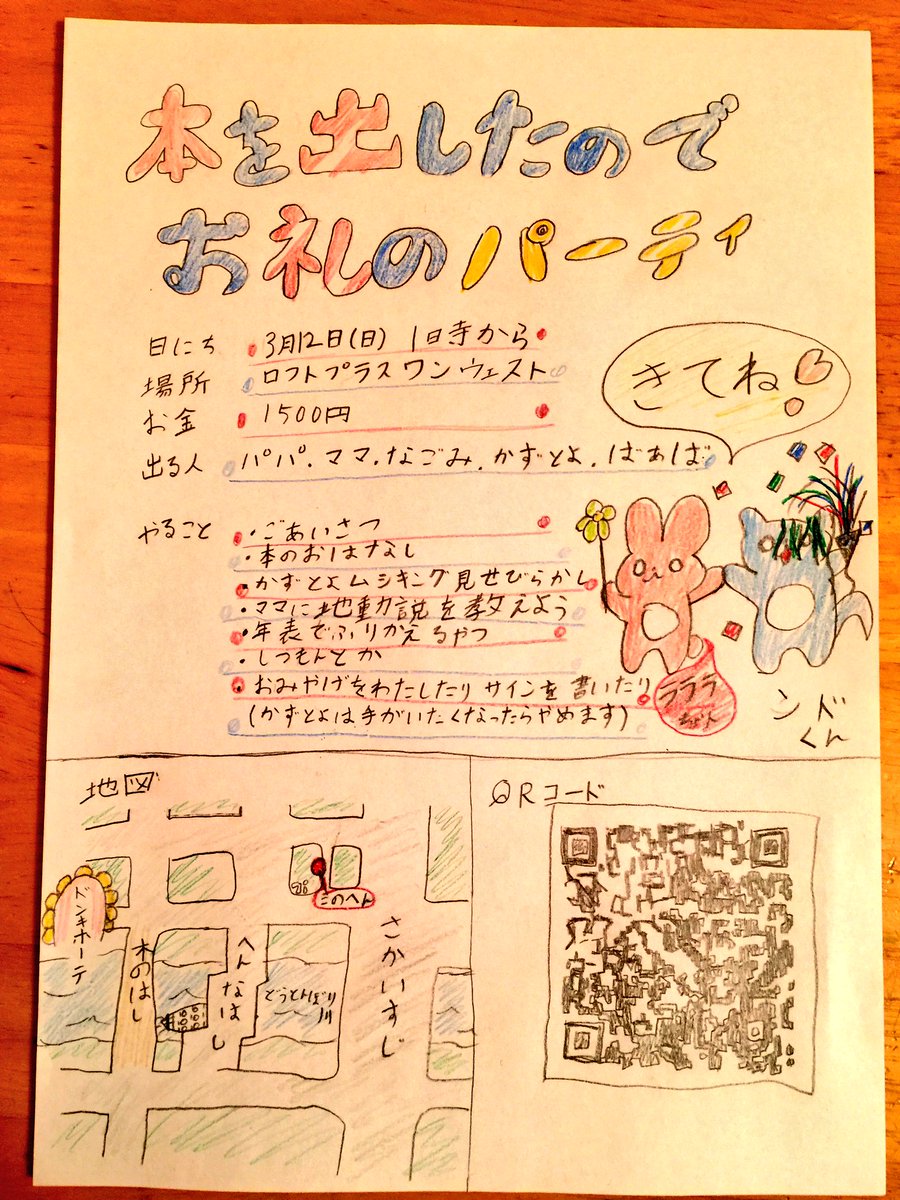 本を出したので
お礼のパーティ
日にち 3月12日(日) 1時から
場所 ロフトプラスワンウエスト
お金 1500円
出る人 パパ.ママ.なごみ.かずとよ.ばあば
きてね!
やること ・ごあいさつ
・本のおはなし
・かずとよムシキング見せびらかし
・ママに地動説を教えよう
・年表でふりかえるやつ
・しつもんとか
・おみやげをわたしたりサインを書いたり
(かずとよは手がいたくなったらやめます)
ラララ
ンドくん
地図
このへん
ドンキホーテ
木のはし
へんなはし
どうとんぼり川
さかいすじ
QRコード